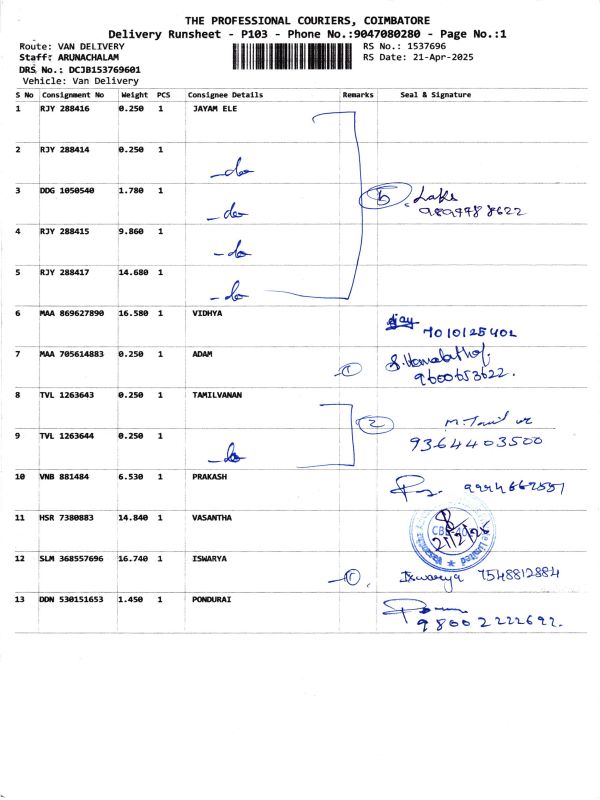 THE PROFESSIONAL COURIERS, COIMBATORE
Delivery Runsheet - P103 - Phone No.:9047080280 - Page No.:1
Route: VAN DELIVERY RS No.: 1537696
Staff: ARUNACHALAM RS Date: 21-Apr-2025
DRS No.: DCJB153769601
Vehicle: Van Delivery
S No Consignment No Weight PCS Consignee Details Remarks Seal & Signature
1 RJY 288416 0.250 1 JAYAM ELE
2 RJY 288414 0.250 1
-do-
3 DDG 1050540 1.780 1
-do-
4 RJY 288415 9.860 1
-do-
5 RJY 288417 14.680 1
-do-
6 MAA 869627890 16.580 1 VIDHYA
7010125402
7 MAA 705614883 0.250 1 ADAM
1
9600653622.
8 TVL 1263643 0.250 1 TAMILVANAN
2
9 TVL 1263644 0.250 1 9364403500
-do-
10 VNB 881484 6.530 1 PRAKASH
11 HSR 7380883 14.840 1 VASANTHA
12 SLM 368557696 16.740 1 ISWARYA
1 Iswarya 7548812884
13 DDN 530151653 1.450 1 PONDURAI
98002222692.